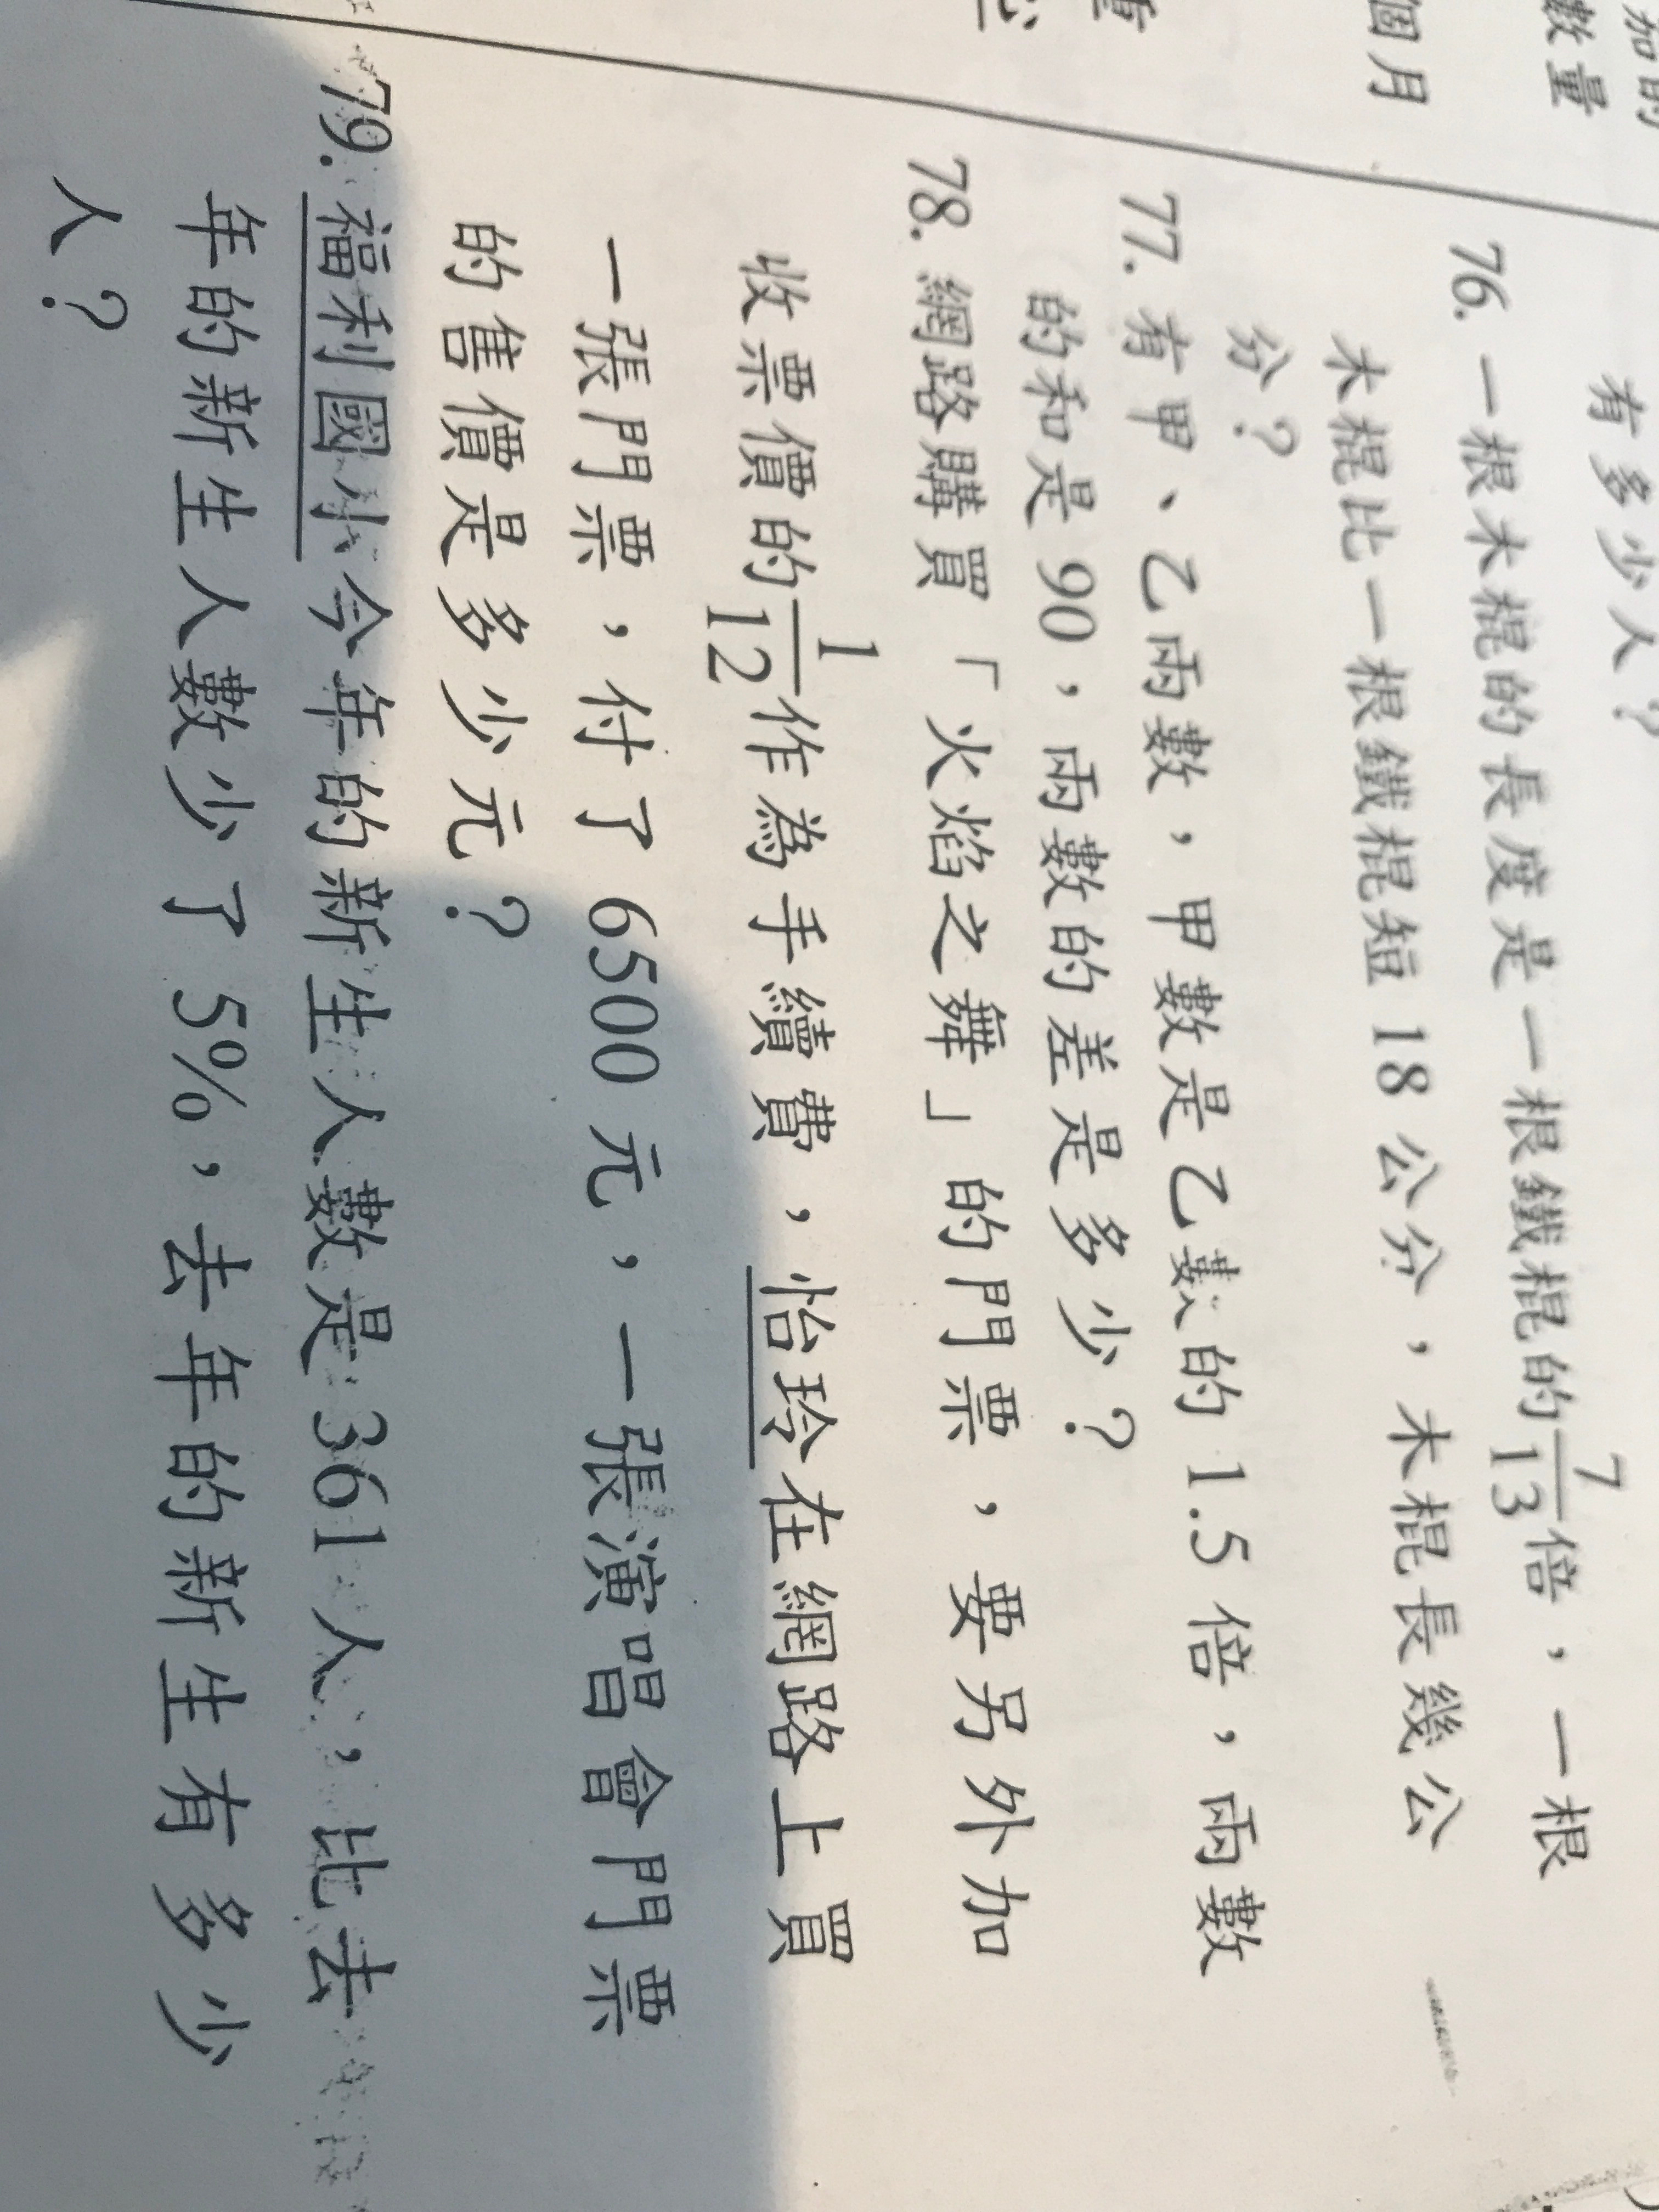 加的
數量
個月
有多少人？
76. 一根木棍的長度是一根鐵棍的7/13倍，一根
木棍比一根鐵棍短 18 公分，木棍長幾公
分？
77. 有甲、乙兩數，甲數是乙數的 1.5 倍，兩數
的和是 90，兩數的差是多少？
78. 網路購買「火焰之舞」的門票，要另外加
收票價的1/12作為手續費，怡玲在網路上買
一張門票，付了 6500 元，一張演唱會門票
的售價是多少元？
79. 福利國小今年的新生人數是 361 人，比去
年的新生人數少了 5%，去年的新生有多少
人？